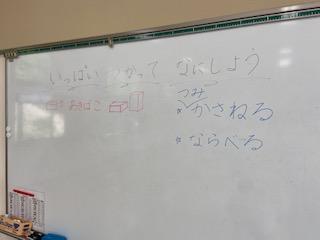 いっぱい つかって なにしよう
あきばこ
つみ
かさねる
ならべる